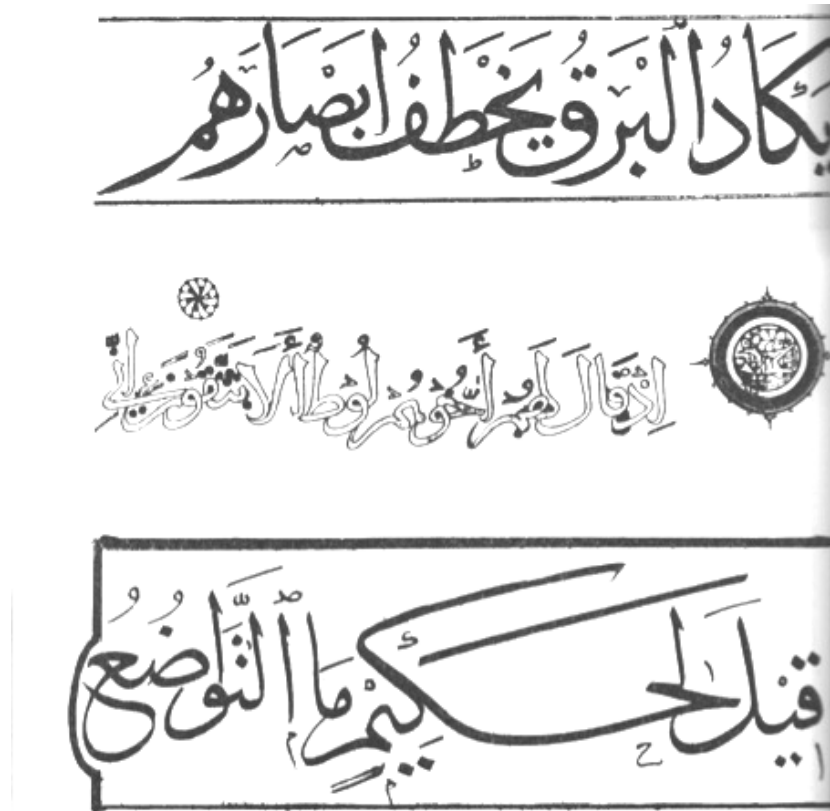 يَكَادُ ٱلْبَرْقُ يَخْطَفُ ابْصَارَهُمْ
اِذْ قَالَ لَهُمْ أَخُوهُمْ لُوطٌ أَلَا تَتَّقُونَ اِنِّى
قِيْلَ لِحَكِيْمٍ مَا ٱلتَّوَاضُعُ